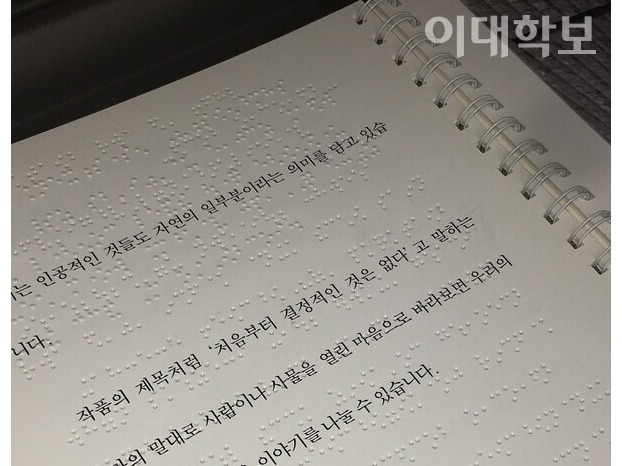 이대학보
는 인공적인 것들도 자연의 일부분이라는 의미를 담고 있습
니다.
작품의 제목처럼 ‘처음부터 결정적인 것은 없다’ 고 말하는
말대로 사람이나 사물을 열린 마음으로 바라보면 우리의
이야기를 나눌 수 있습니다.